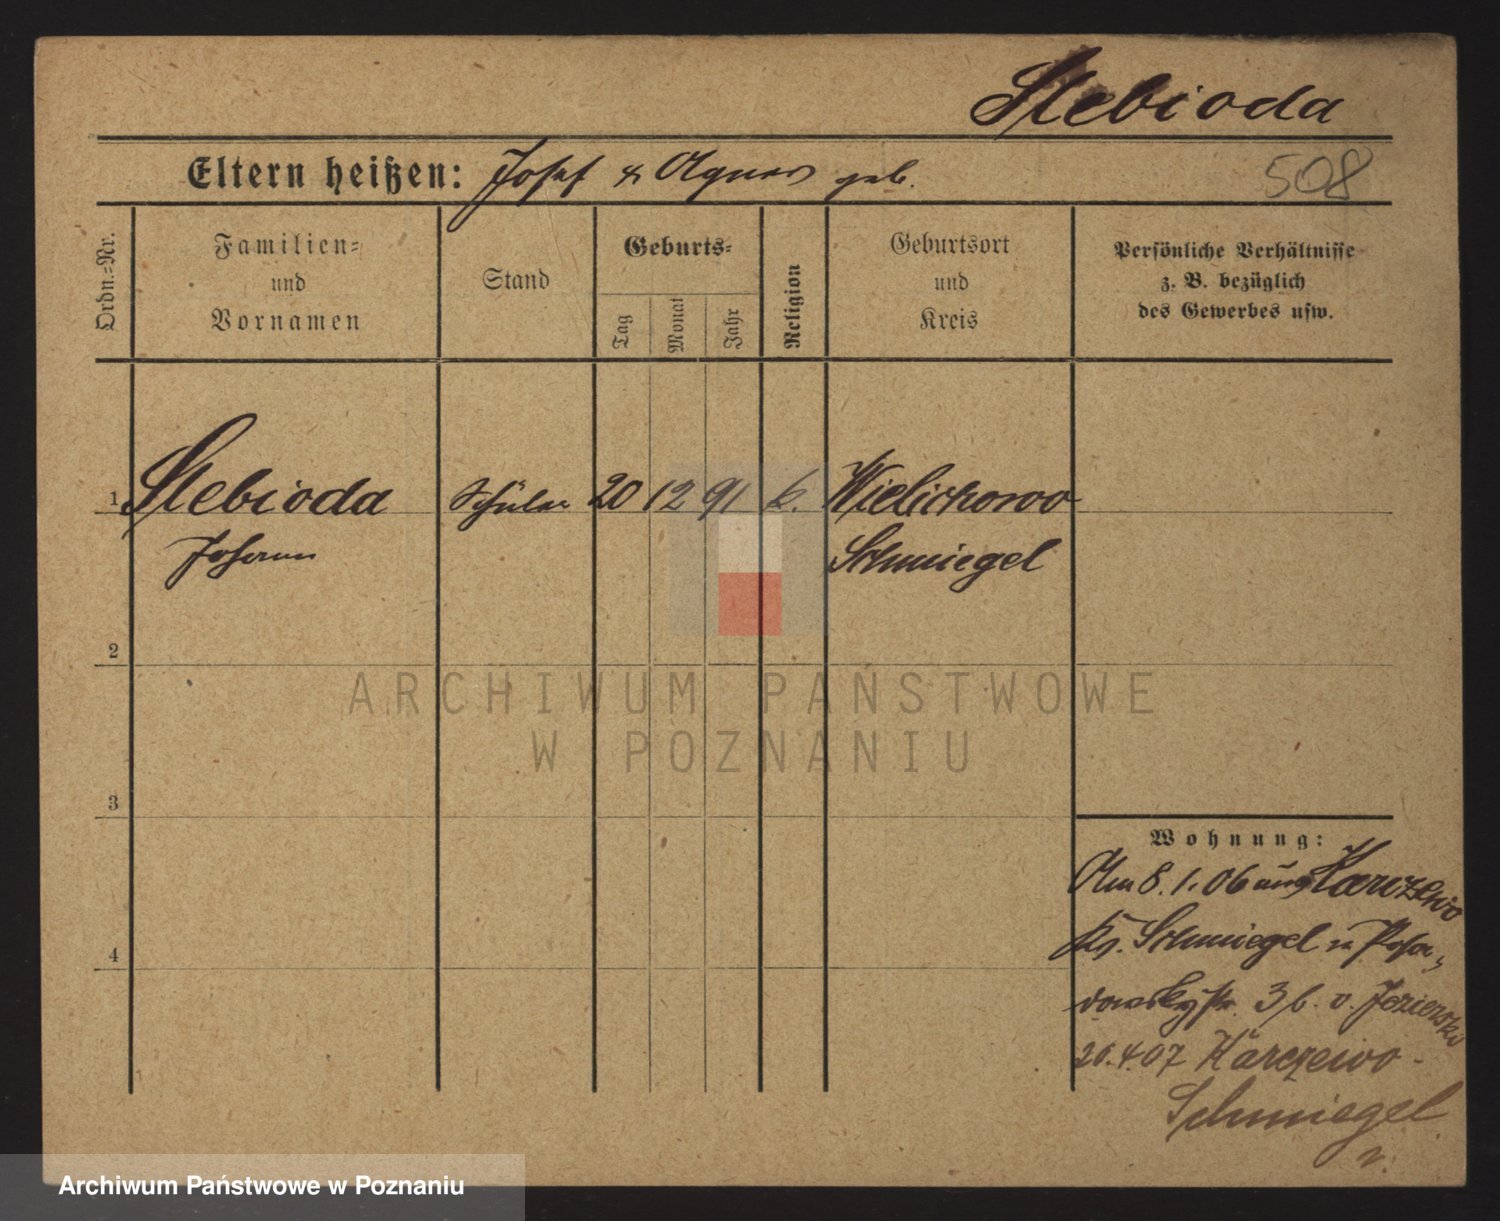 Slebioda
Eltern heißen: Josef & Agnes geb.
508
Ordn.=Nr.
Familien=
und
Vornamen
Stand
Geburts=
Tag
Monat
Jahr
Religion
Geburtsort
und
Kreis
Persönliche Verhältnisse
z. B. bezüglich
des Gewerbes usw.
1 Slebioda Schüler 20 12 91 k. Wielichowo
Johann Schmiegel
2
3
4
Wohnung:
Am 8.1.06 aus Karczewo
Kr. Schmiegel n. Posa-
dowskystr. 3 b. v. Jezierski
20.4.07 Karczewo -
Schmiegel
v.
ARCHIWUM PAŃSTWOWE
W POZNANIU
Archiwum Państwowe w Poznaniu